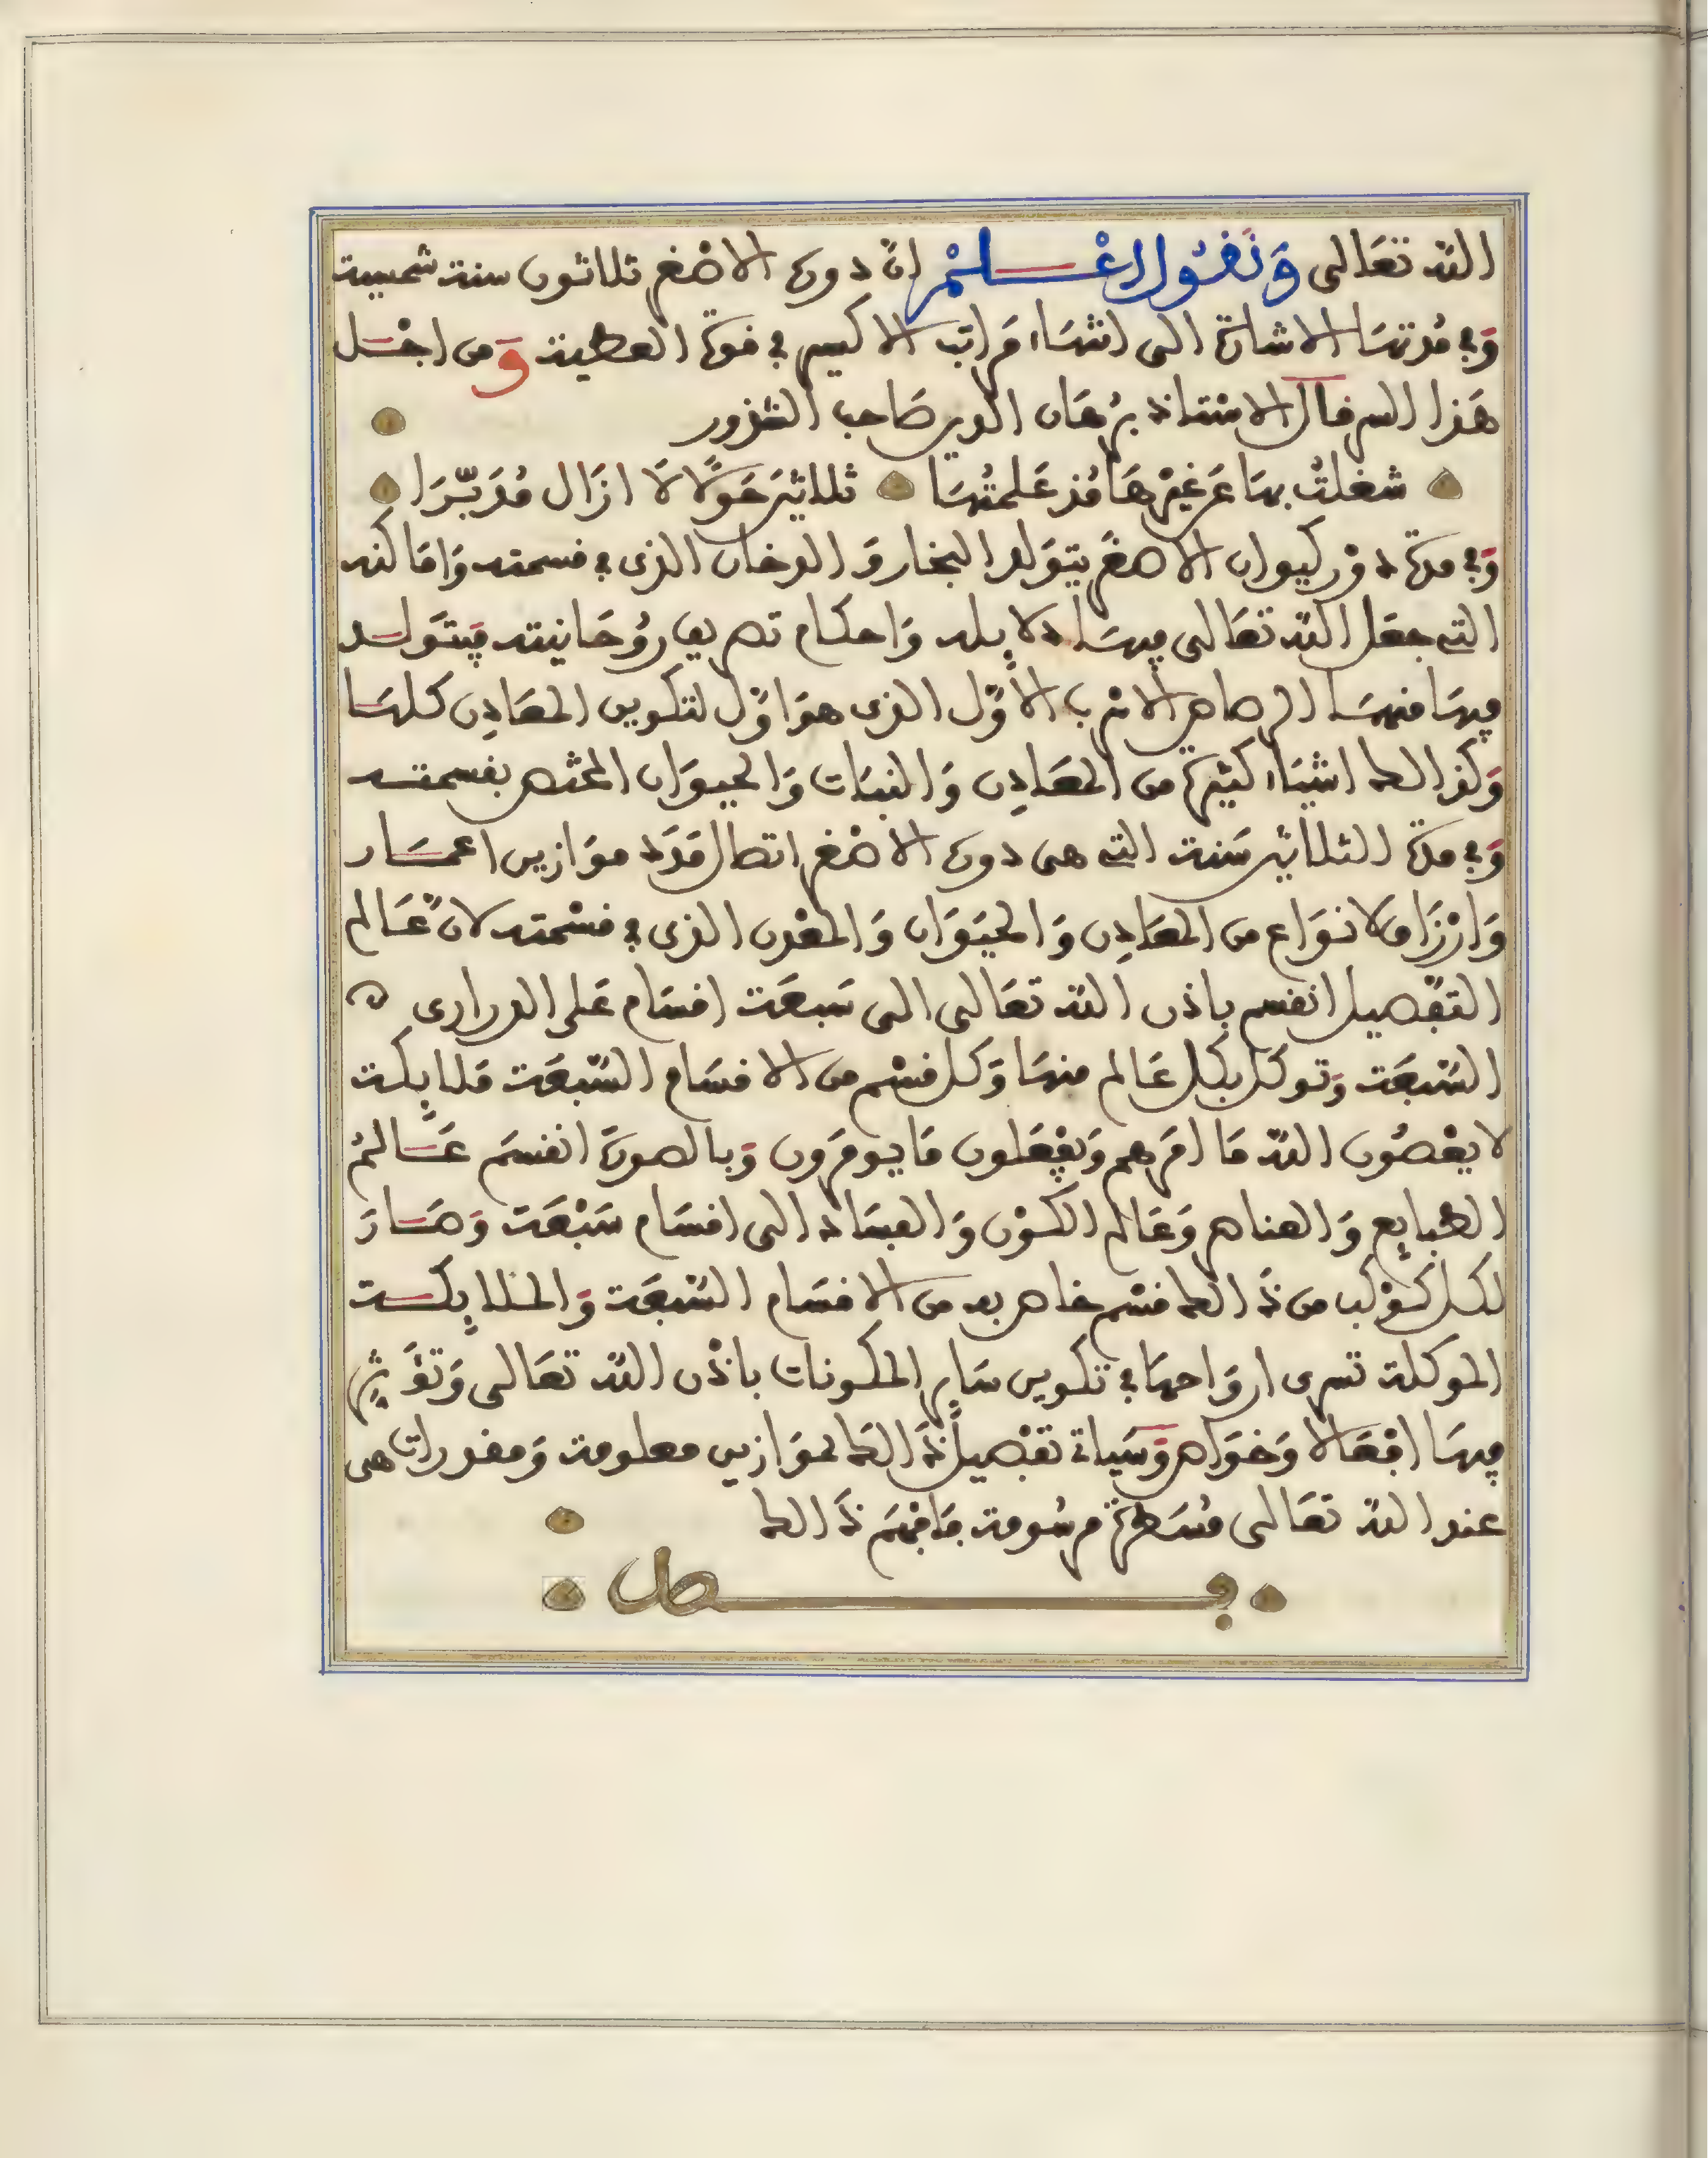 الله تعالى وَنَقُول اعْلَمْ انّ دوره الاصْغر ثلاثون سنة شمسية
وَفي مُدتهَا الاشارة الى انتهَاء مَراتب الاكسير في قوة العطية وَمن اجْل
هَذا السر قال الاسْتاذ برْهَان الدين صَاحب الشذور
شغلتُ بهَا عَن غيْرهَا مُذ عَلمتُهَا ثلاثينَ حَوْلًا لَا ازَال مُدَبّرَا
وَفي مدة دوْر كيوان الاصغَر يتوَلد البخار وَالدخان الذي في قسمته وَاماكنه
التي جعَل الله تعَالى فيهَا دلايله وَاحكام تصريف روُحَانيته فيتَولد
فيهَا منهَا الرصاص الاسْرب الأوّل الذي هوَ اوّل لتكوين المعَادن كلهَا
وَكذالك اشيَاء كثيرة من المعَادِن وَالنبَات وَالحيوَان المختص بقسمته
وَفي مدة الثلاثين سَنة التي هي دوره الاصْغر اتصال مَدَد موَازين اعمَار
وَارْزَاق لانوَاع من المعَادِن وَالحيَوَان وَالمعْدن الذي في قسْمته لانّ عَالم
التفْصيل انقسم باذن الله تعَالى الى سَبعَة اقسَام عَلى الدراري
السّبعَة وَتوكل بكل عَالم منهَا وَكل قسْم من الاقسَام السّبعَة مَلايكة
لا يعْصُون الله مَا امَرهم وَيفعَلون مَا يومَرون وَبالصورَة انقسَم عَالمُ
الطبايع وَالعناصر وَعَالم الكوْن وَالفسَاد الى اقسَام سَبْعَة وَصَارَ
لكل كوْكب من ذَالك قسْم خاص به من الاقسَام السّبعَة وَالملايكة
الموكلة تسرى اروَاحهَا في تكوين سَاير المكونات باذْن الله تعَالى وَتؤَثر
فيهَا افعَالا وَخوَاص وَسَياتي تفْصيل ذَالك لموَازين معلومة وَمقدورات هى
عند الله تعَالى مُسَطرة مرسُومة فافهَم ذَالك
فصل